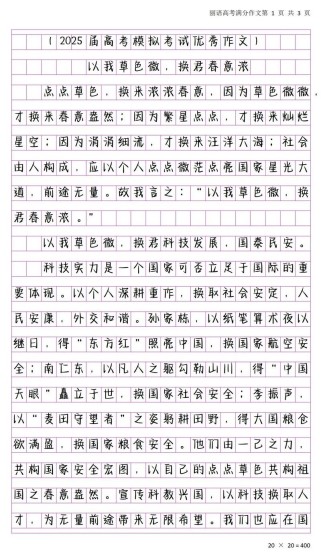 丽语高考满分作文第 1 页 共 3 页
（2025 届高考模拟考试优秀作文）
以我草色微，换君春意浓
点点草色，换来浓浓春意，因为草色微微，
才换来春意盎然；因为繁星点点，才换来灿烂
星空；因为涓涓细流，才换来汪洋大海；社会
由人构成，应以个人点点微茫点亮国家星光大
道，前途无量。故我言之：“以我草色微，换
君春意浓。”
以我草色微，换君科技发展，国泰民安。
科技实力是一个国家可否立足于国际的重
要体现。以个人深耕重作，换取社会安定，人
民安康，外交和谐。孙家栋，以纸笔算术夜以
继日，得“东方红”照亮中国，换国家航空安
全；南仁东，以凡人之躯勾勒山川，得“中国
天眼”矗立于世，换国家社会安全；李振声，
以“麦田守望者”之姿躬耕田野，得大国粮仓
欲满盈，换国家粮食安全。他们由一己之力，
共构国家安全宏图，以自己的点点草色共构祖
国之春意盎然。宣传科教兴国，以科技换取人
才，为无量前途带来无限希望。我们也应在国
20 × 20 = 400